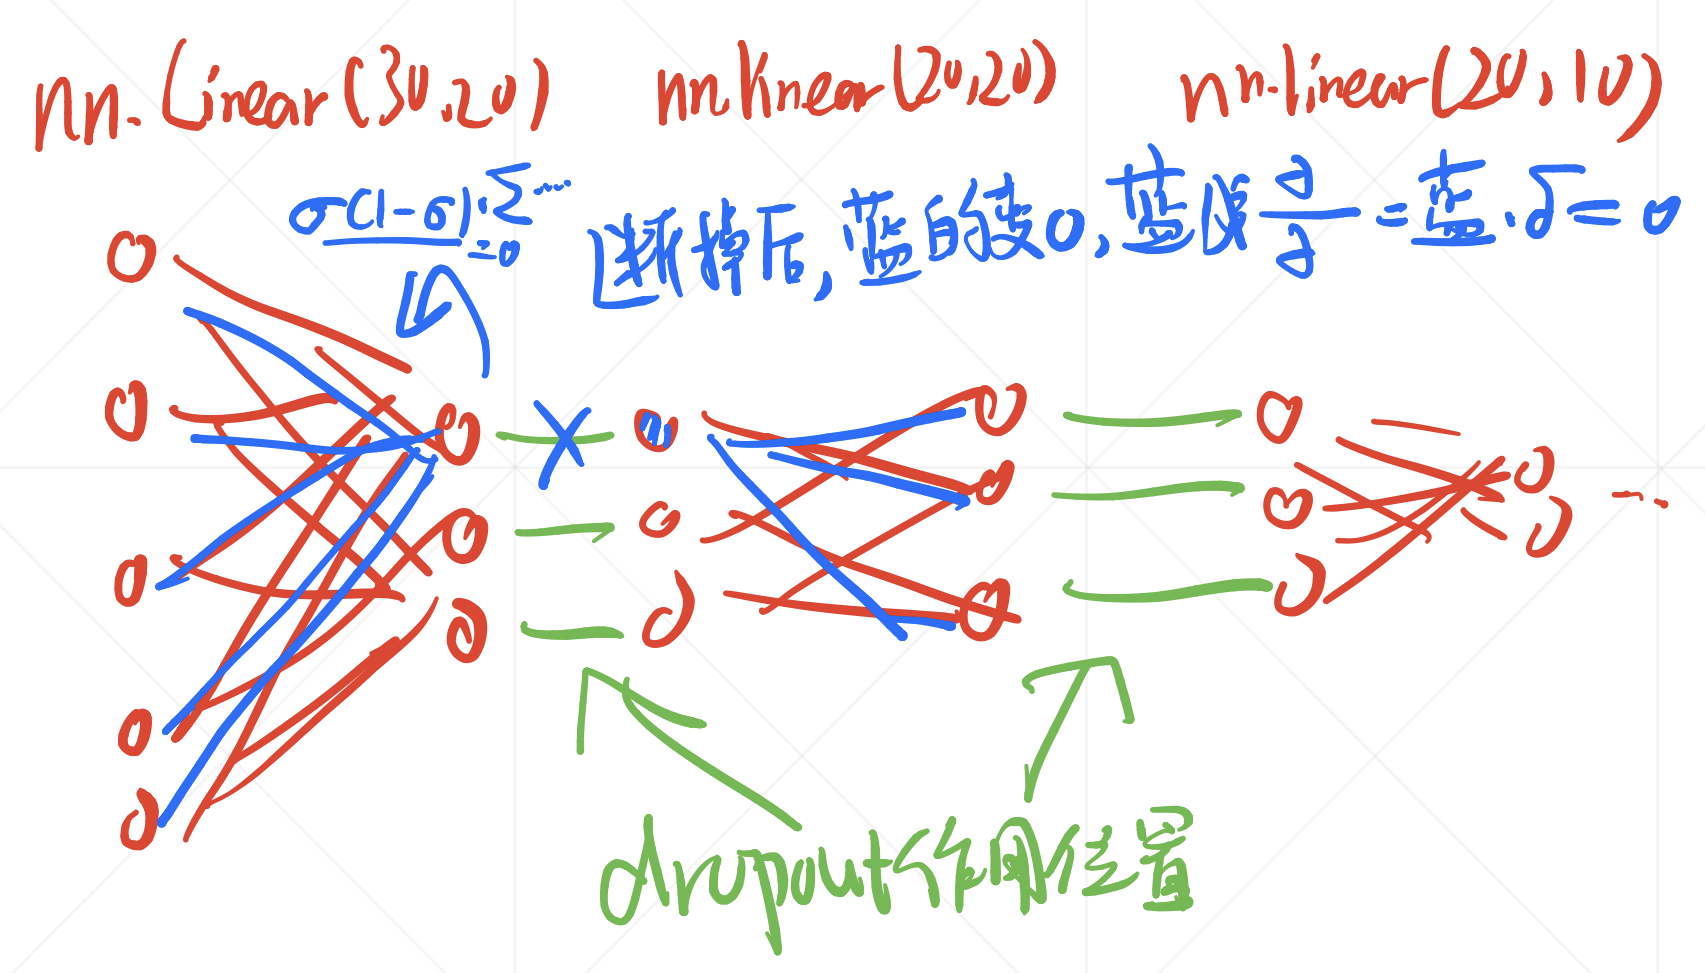 nn.Linear(30,20) nn.linear(20,20) nn.linear(20,10)
σ(1-σ)·Σ...
=0
断掉后,蓝的变0,蓝线∂/∂=蓝·δ=0
...
dropout作用位置